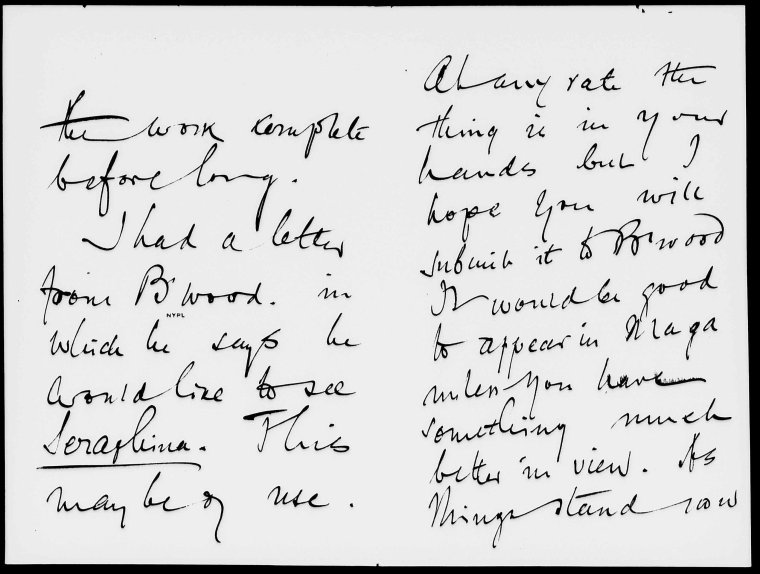 the work complete
before long.
I had a letter
from B'wood. in
NYPL
which he says he
would like to see
Seraphina. This
may be of use.
At any rate the
thing is in your
hands but I
hope you will
submit it to B'wood
It would be good
to appear in Maga
unless you have
something much
better in view. As
things stand now